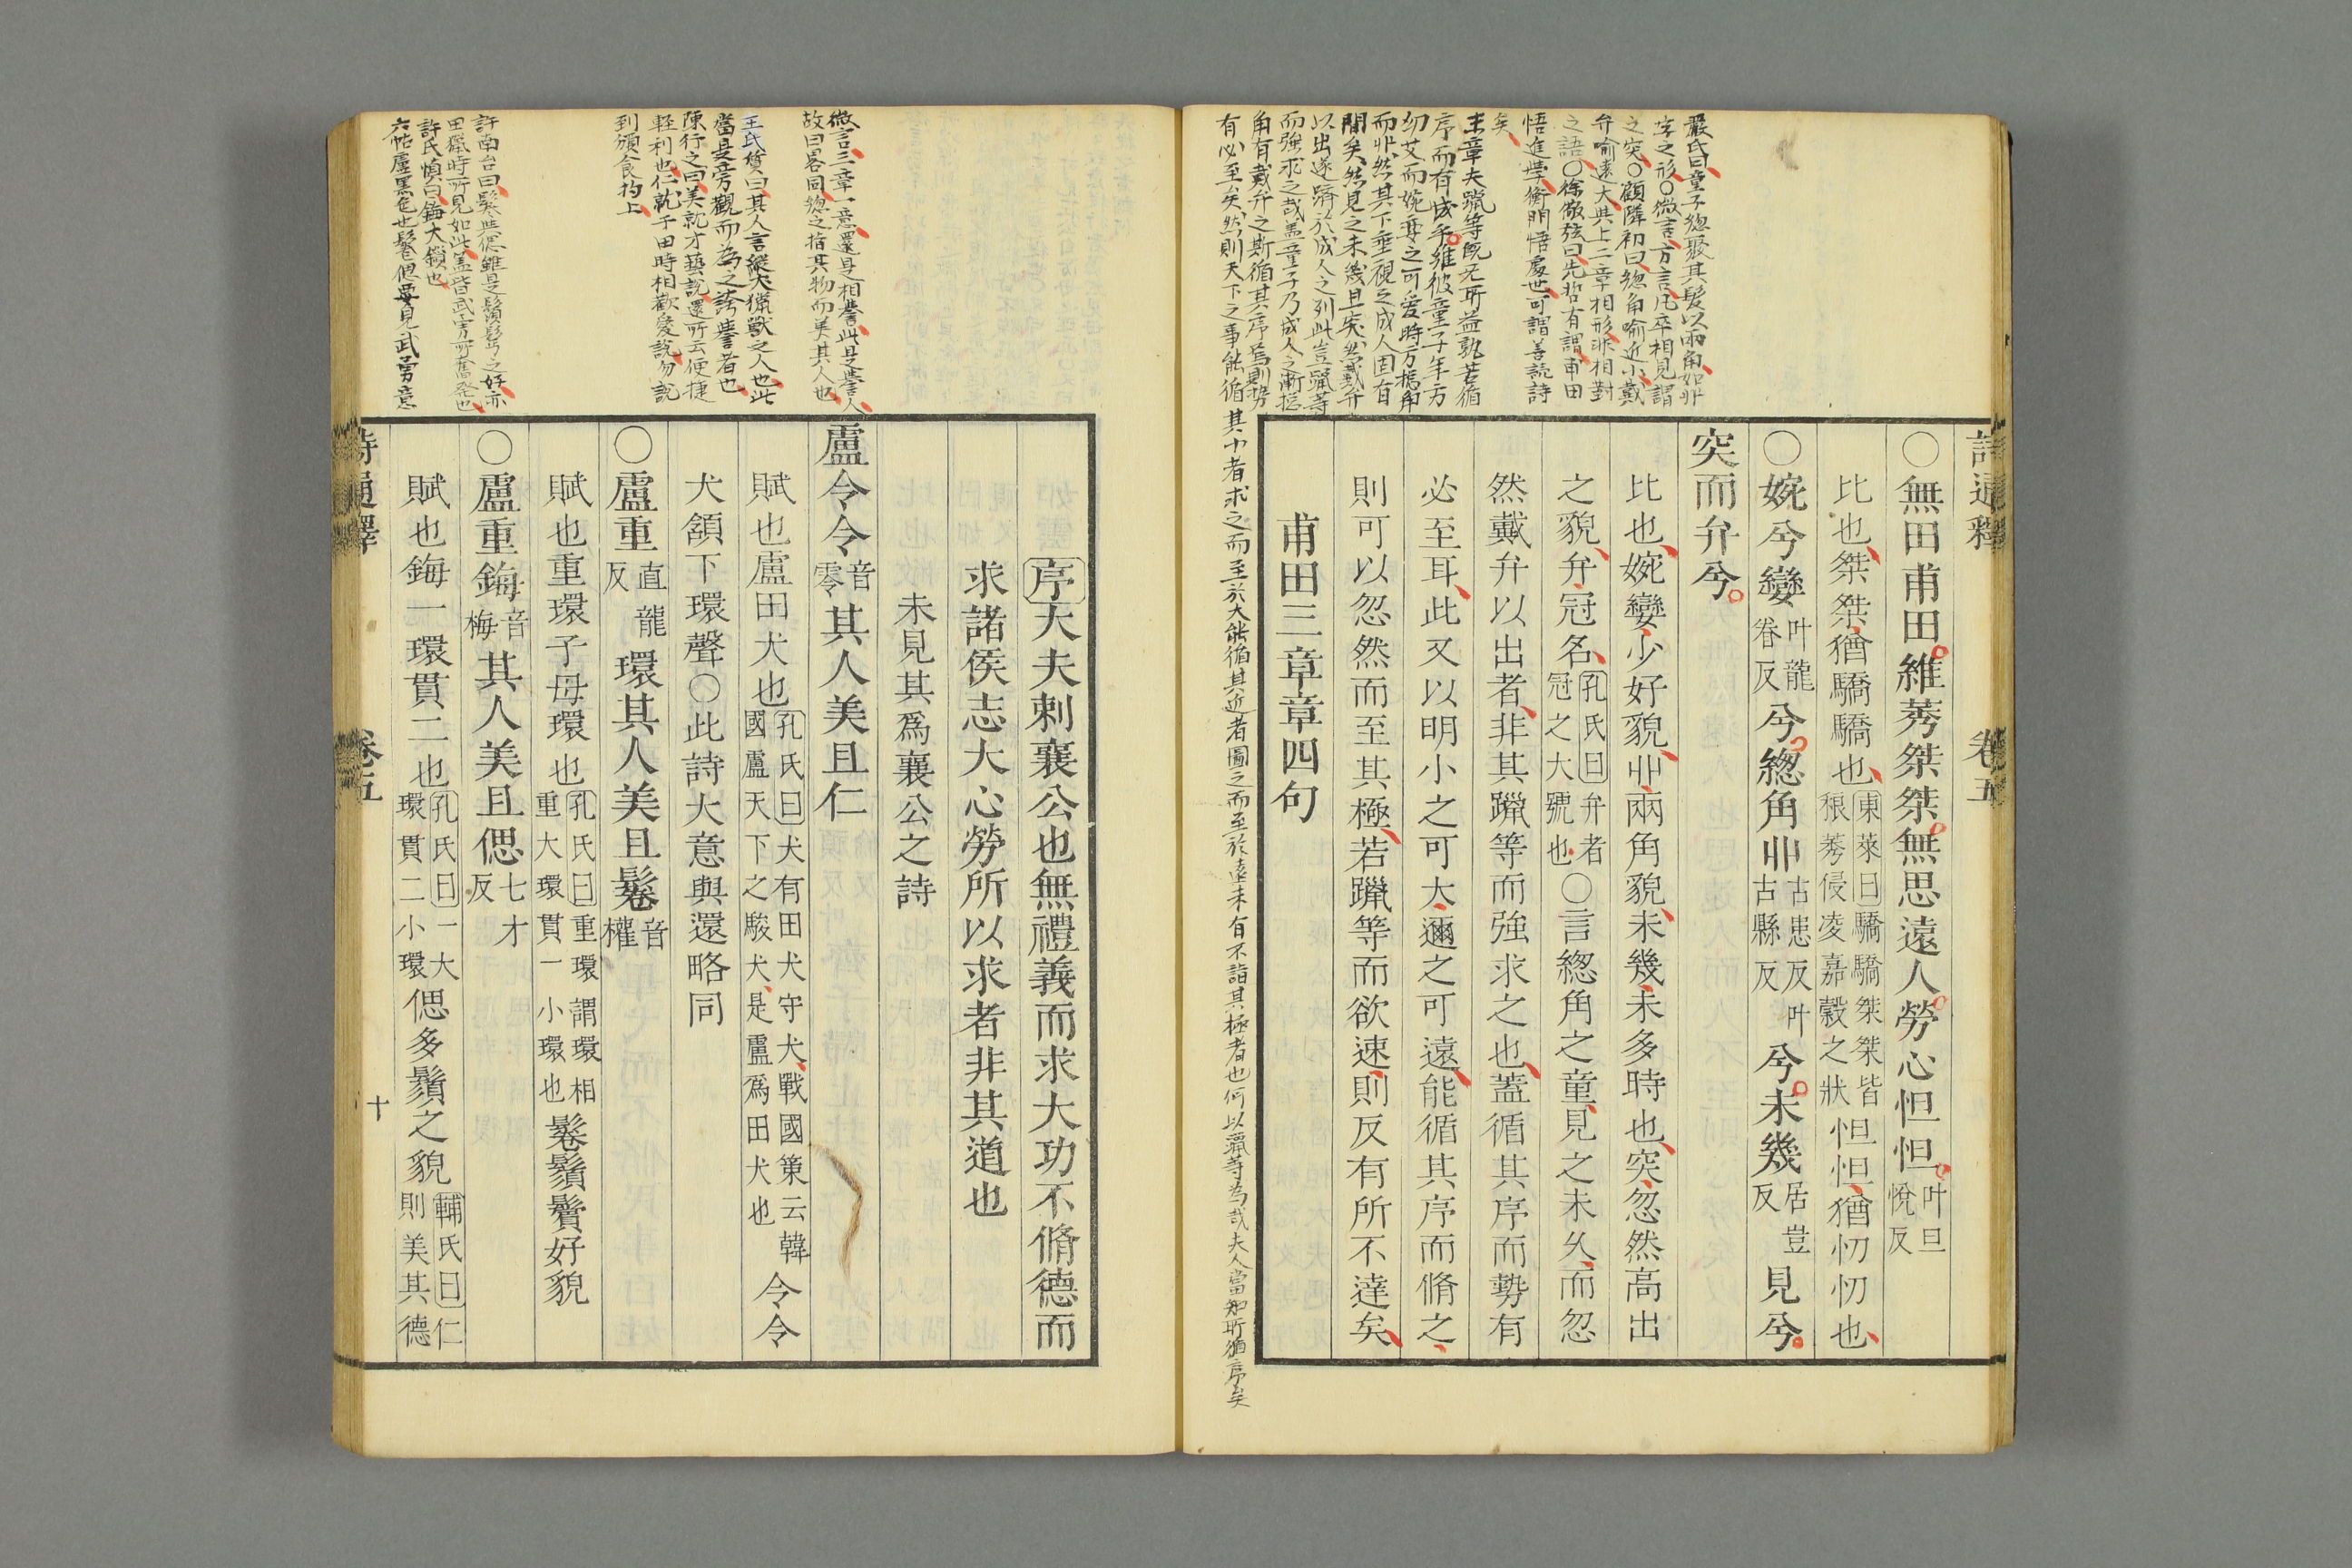 詩通釋　卷五
○無田甫田維莠桀桀無思遠人勞心怛怛叶旦悅反
比也桀桀猶驕驕也東萊曰驕驕桀桀皆稂莠侵凌嘉穀之狀怛怛猶忉忉也
○婉兮孌叶龍眷反兮總角丱古患反叶古縣反兮未幾居豈反見兮
突而弁兮
比也婉孌少好貌丱兩角貌未幾未多時也突忽然高出
之貌弁冠名孔氏曰弁者冠之大號也○言總角之童見之未久而忽
然戴弁以出者非其躐等而強求之也蓋循其序而勢有
必至耳此又以明小之可大邇之可遠能循其序而脩之
則可以忽然而至其極若躐等而欲速則反有所不達矣
甫田三章章四句
嚴氏曰童子總聚其髮以兩角如丱
字之形○微言方言凡卒相見謂
之突○顧隣初曰總角喻近小戴
弁喻遠大與上二章相形非相對
之語○徐儆弦曰先哲有謂甫田
悟進學衡門悟處世可謂善說詩
矣
末章夫躐等旣无所益孰若循
序而有成乎維彼童子年方
幼艾而婉孌之可爱時方總角
而丱然其下垂視之成人固有
間矣然見之未幾且突然戴弁
以出遂躋於成人之列此豈躐等
而強求之哉盖童子乃成人之漸總
角有戴弁之斯循其序焉則勢
有必至矣然則天下之事能循
其小者求之而至於大能循其近者圖之而至於遠未有不詣其極者也何以躐等為哉夫人當知所循序矣
序大夫刺襄公也無禮義而求大功不脩德而
求諸侯志大心勞所以求者非其道也
未見其爲襄公之詩
盧令令音零其人美且仁
賦也盧田犬也孔氏曰犬有田犬守犬戰國策云韓國盧天下之駿犬是盧爲田犬也令令
犬頷下環聲○此詩大意與還略同
○盧重直龍反環其人美且鬈音權
賦也重環子母環也孔氏曰重環謂環相重大環貫一小環也鬈鬚鬢好貌
○盧重鋂音梅其人美且偲七才反
賦也鋂一環貫二也孔氏曰一大環貫二小環偲多鬚之貌輔氏曰仁則美其德
詩通釋　卷五　十
微言三章一意還是相譽此是譽人
故曰畧同總之指其物而美其人也
王氏質曰其人言縱犬獵獸之人也此
當是旁觀而為之誇譽者也
陳行之曰美就才藝說還所云便捷
輕利也仁就于田時相歡愛說勿說
到頒食均上
許南台曰鬈與偲雖是鬚髯之好亦
田獵時所見如此盖皆武勇所奮發也
許氏慎曰鋂大鎖也
六帖盧黑色也鬈偲要見武勇意